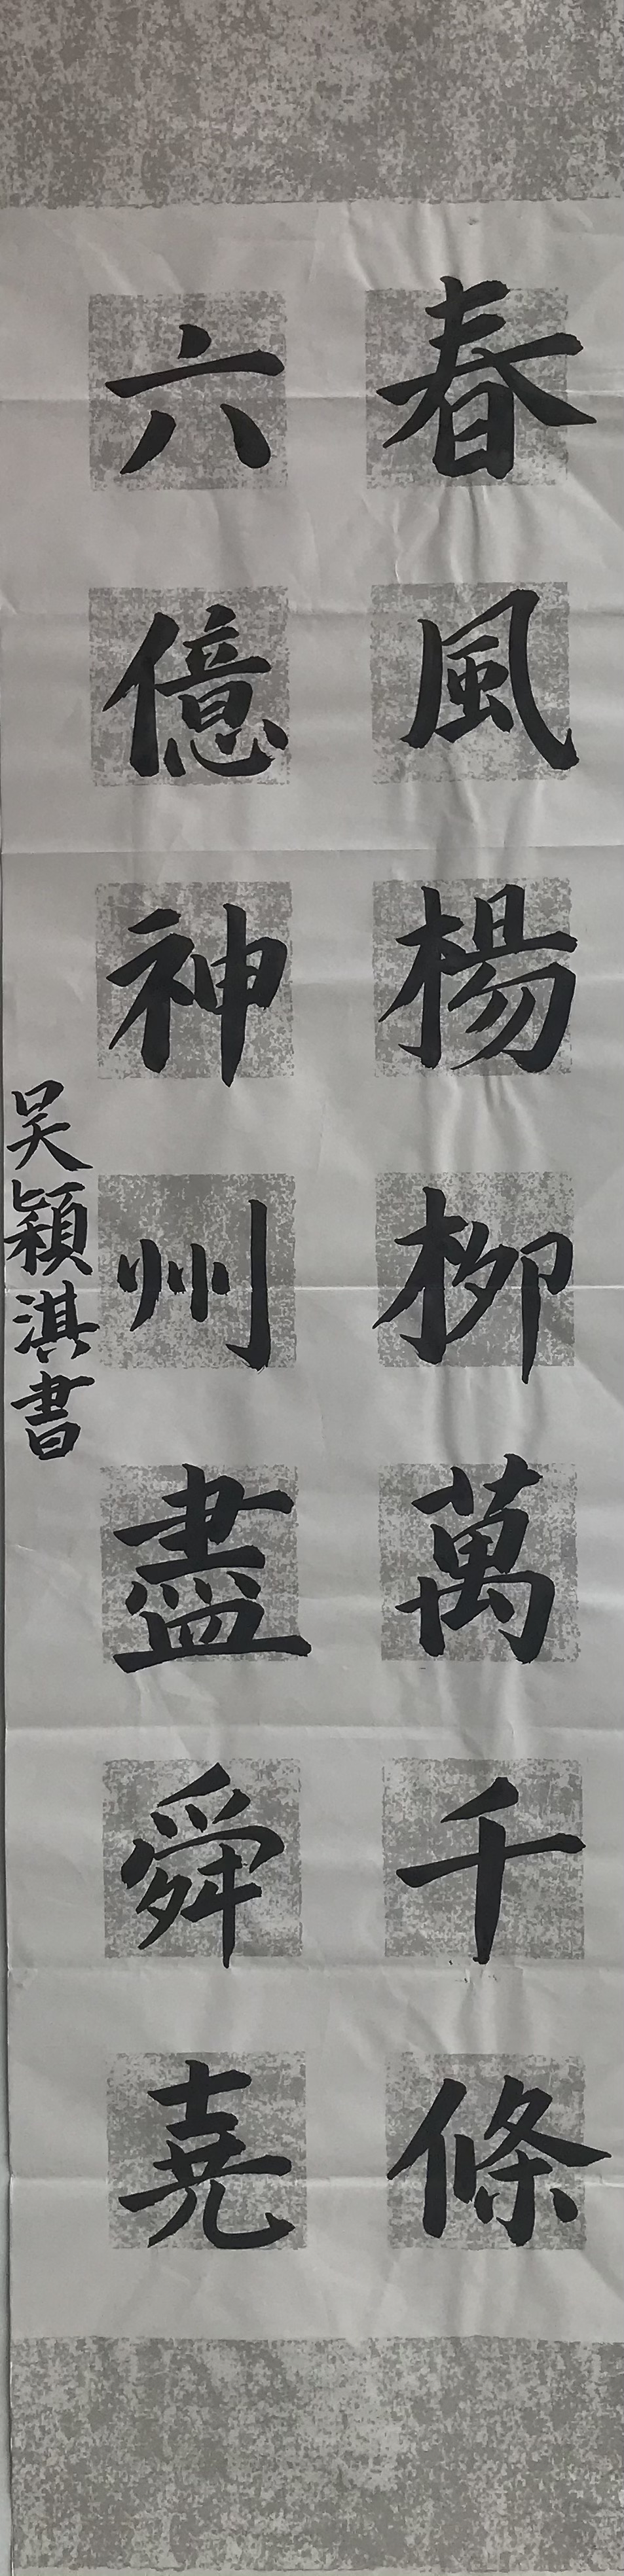 春風楊柳萬千條
六億神州盡舜堯
吴穎淇書